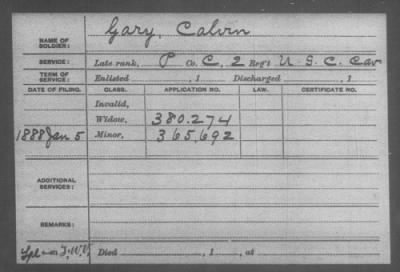 NAME OF SOLDIER: Gary, Calvin
SERVICE: Late rank, P Co. C, 2 Reg't U S C. Cav
TERM OF SERVICE: Enlisted , 1 Discharged , 1
DATE OF FILING. CLASS. APPLICATION NO. LAW. CERTIFICATE NO.
Invalid,
Widow, 380.274
1888 Jan 5 Minor, 365,692
ADDITIONAL SERVICES:
REMARKS:
Died , 1 , at